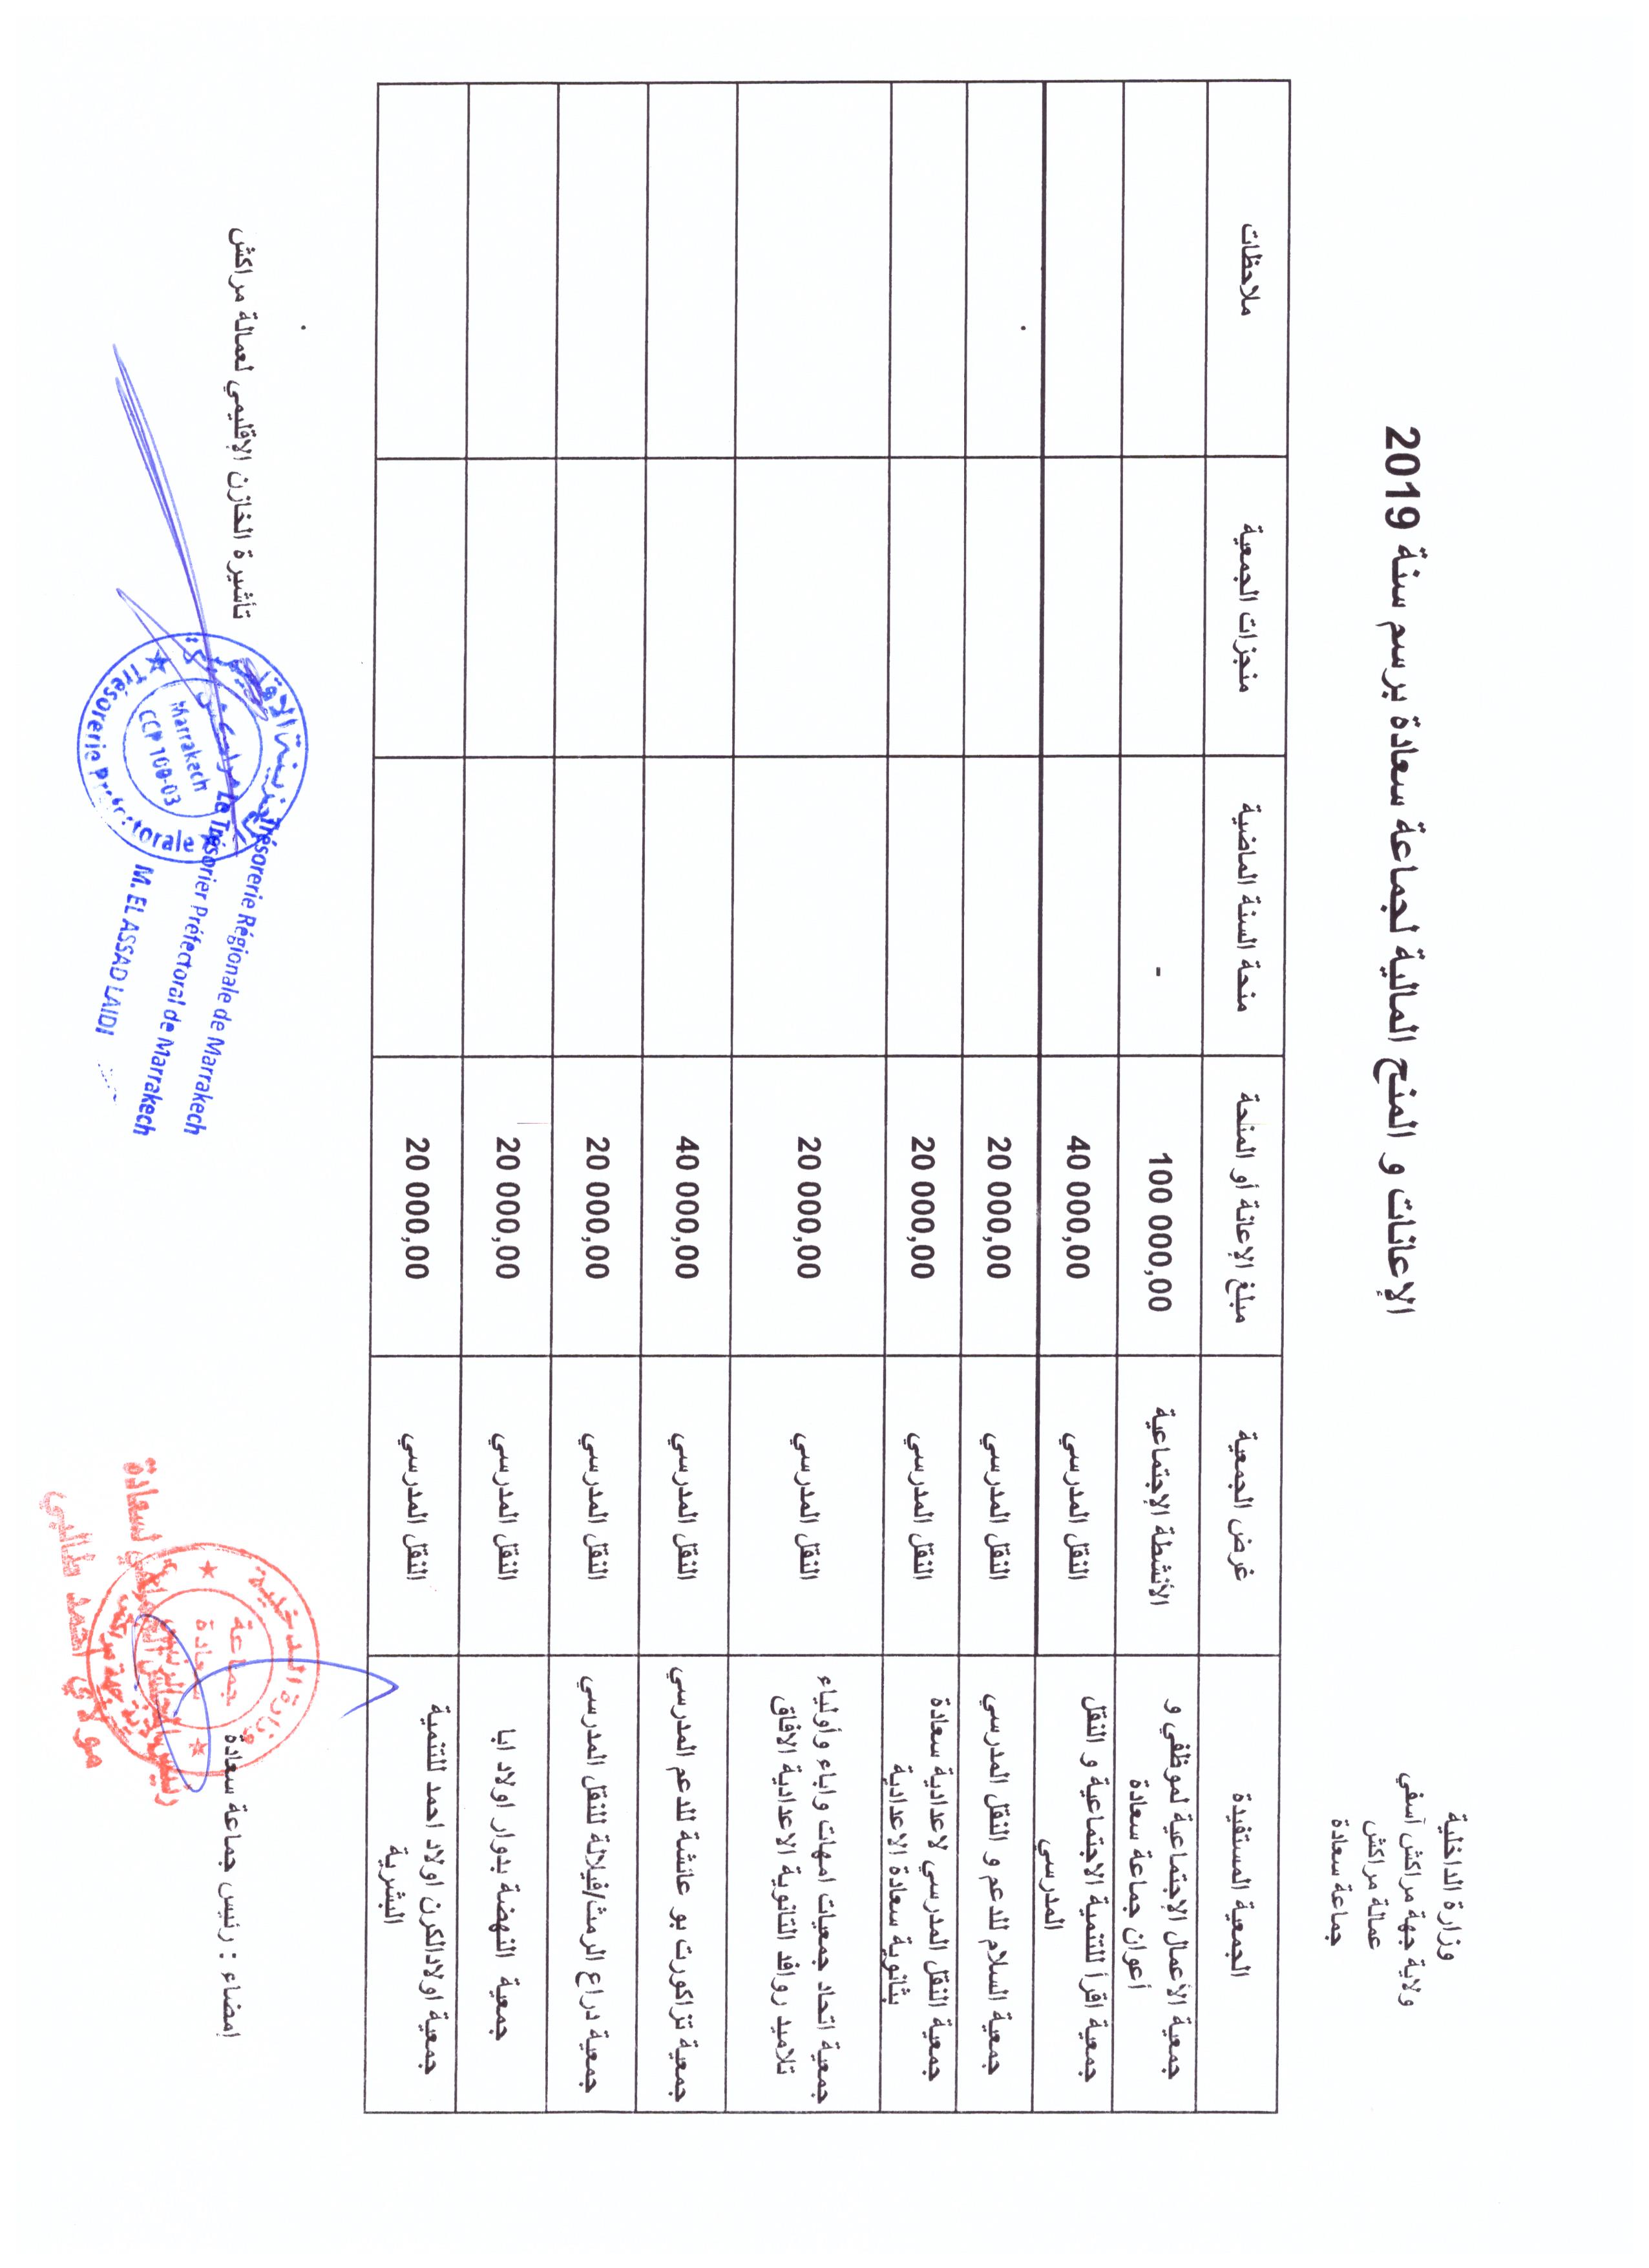 وزارة الداخلية
ولاية جهة مراكش آسفي
عمالة مراكش
جماعة سعادة
الإعانات و المنح المالية لجماعة سعادة برسم سنة 2019
الجمعية المستفيدة غرض الجمعية مبلغ الإعانة أو المنحة منحة السنة الماضية منجزات الجمعية ملاحظات
جمعية الأعمال الإجتماعية لموظفي و
أعوان جماعة سعادة
الأنشطة الإجتماعية 100 000,00 -
جمعية اقرأ للتنمية الاجتماعية و النقل
المدرسي
النقل المدرسي 40 000,00
جمعية السلام للدعم و النقل المدرسي النقل المدرسي 20 000,00
جمعية النقل المدرسي لاعدادية سعادة
بثانوية سعادة الاعدادية
النقل المدرسي 20 000,00
جمعية اتحاد جمعيات امهات واباء وأولياء
تلاميد روافد الثانوية الاعدادية الافاق
النقل المدرسي 20 000,00
جمعية تزاكورت بو عائشة للدعم المدرسي النقل المدرسي 40 000,00
جمعية دراع الرمث/فيلالة للنقل المدرسي النقل المدرسي 20 000,00
جمعية النهضة بدوار اولاد ابا النقل المدرسي 20 000,00
جمعية اولادالكرن اولاد احمد للتنمية
البشرية
النقل المدرسي 20 000,00
إمضاء : رئيس جماعة سعادة
وزارة الداخلية
جماعة
سعادة
مولاي احمد طالبي
تأشيرة الخازن الإقليمي لعمالة مراكش
Trésorerie Préfectorale
Marrakech
CCP 100-03
Trésorerie Régionale de Marrakech
Le Trésorier Préfectoral de Marrakech
M. EL ASSAD LAIDI